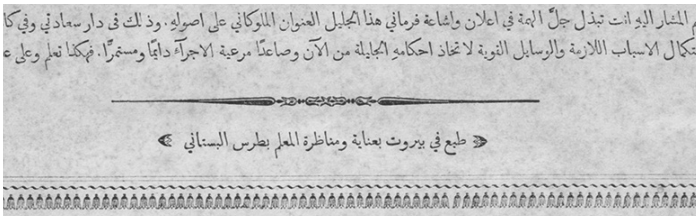 م المشار اليهِ انت تبذل جلَّ الهمة في اعلان واشاعة فرماني هذا الجليل العنوان الملوكاني على اصولهِ. وذلك في دار سعادتي وفي كا
تكمال الاسباب اللازمة والوسايل القوية لاتخاذ احكامهِ الجليلة من الآن وصاعدًا مرعية الاجرآء دايمًا ومستمرًا. فهكذا تعلم وعلى
طبع في بيروت بعناية ومناظرة المعلم بطرس البستاني